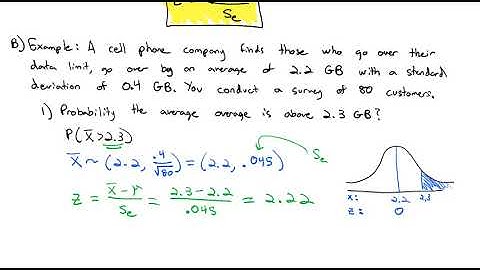 Se
B) Example: A cell phone company finds those who go over their
data limit, go over by an average of 2.2 GB with a standard
deviation of 0.4 GB. You conduct a survey of 80 customers.
1) Probability the average average is above 2.3 GB?
P(X̄>2.3)
X̄ ~ (2.2, .4/√80) = (2.2, .045) Se
Z = X̄-μ/Se = 2.3-2.2/.045 = 2.22
X: 2.2 2.3
Z: 0